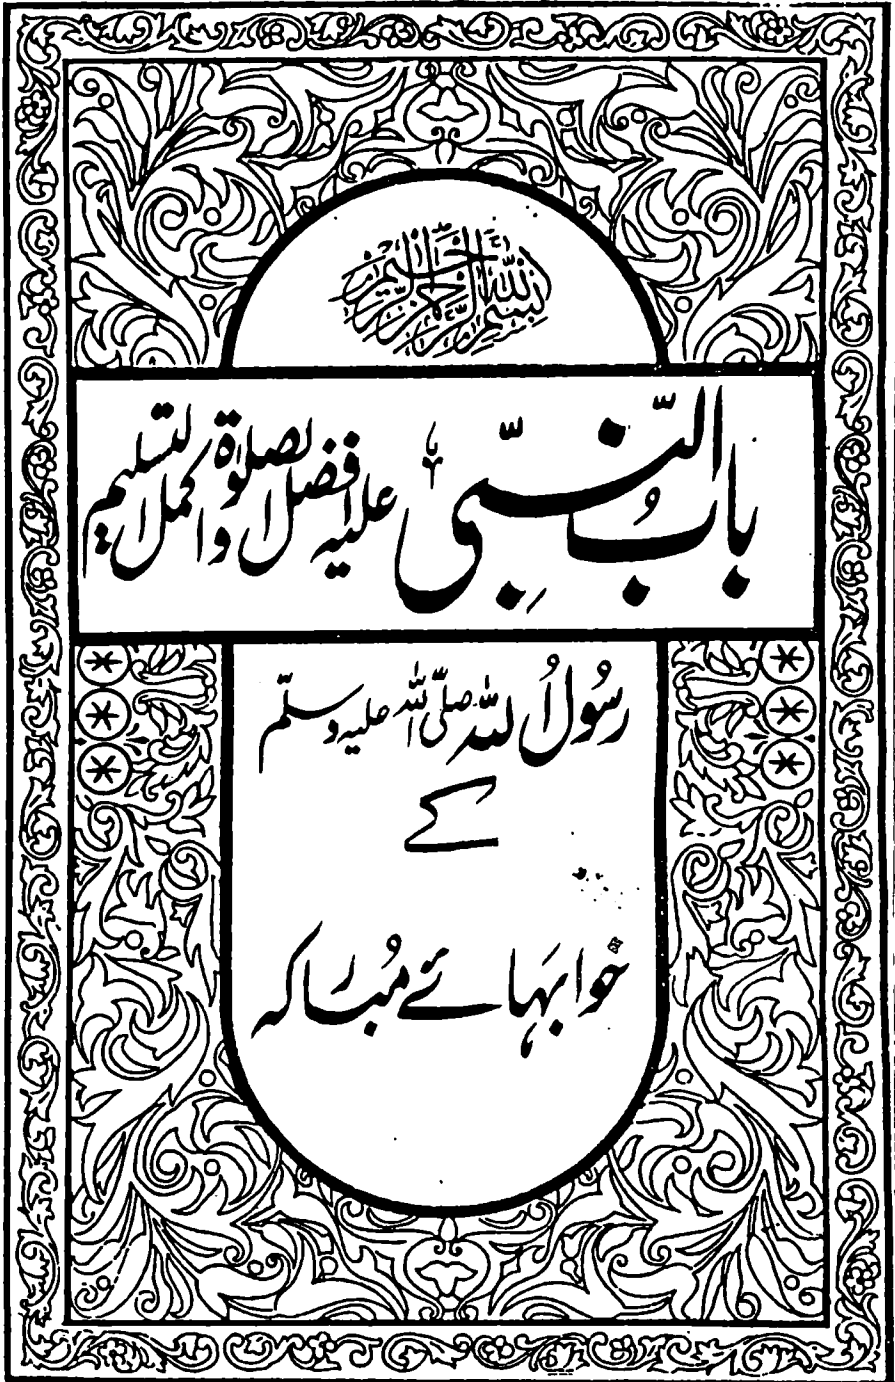 بسم الله الرحمن الرحیم
بابُ النَّبِیِّ علیہ افضل الصلوٰۃ واکمل التسلیم
رسُولُ اللہ صلّی اللہ علیہ وسلّم
کے
خوابہَائے مُبارکہ